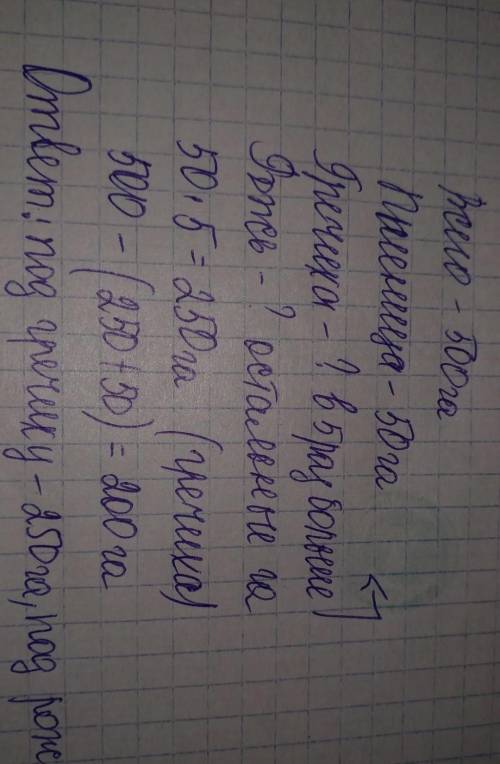 Всего - 500га
Пшеница - 50га
Гречиха - ? в 5 раз больше
Рожь - ? остальные га
50 · 5 = 250га (гречиха)
500 - (250 + 50) = 200га
Ответ: под гречиху - 250га, под рож